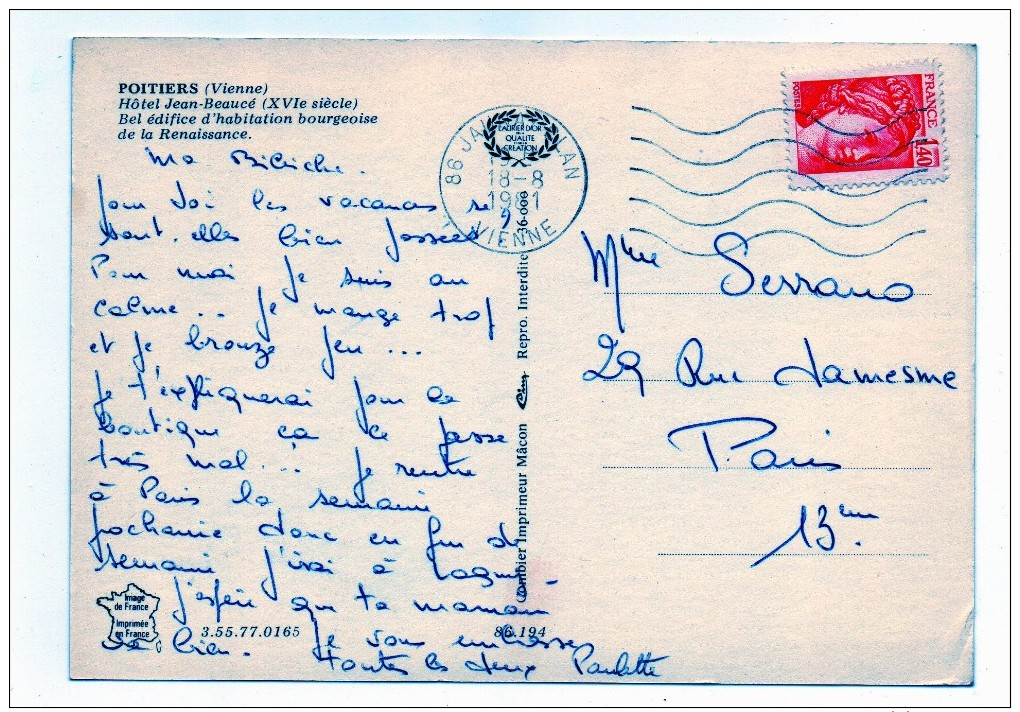 POITIERS (Vienne)
Hôtel Jean-Beaucé (XVIe siècle)
Bel édifice d'habitation bourgeoise
de la Renaissance.
Ma Bibiche.
pour toi les vacances se
sont-elles bien passées ?
Pour moi je suis au
calme... je mange trop
et je bronze peu...
je t'expliquerai pour la
boutique ça ce passe
très mal... je rentre
à Paris la semaine
prochaine donc en fin de
semaine j'irai à
j'espère que ta maman
va bien. Je vous embrasse
toutes les deux Paulette
Image
de France
Imprimée
en France
3.55.77.0165
86.194
Combier Imprimeur Mâcon Repro. Interdite 36-000
LAURIER D'OR
DE LA
QUALITÉ
CRÉATION
86 JA AN
18-8
1981
VIENNE
POSTES
FRANCE
1,40
Mme Serrano
29 Rue Damesme
Paris
13em.